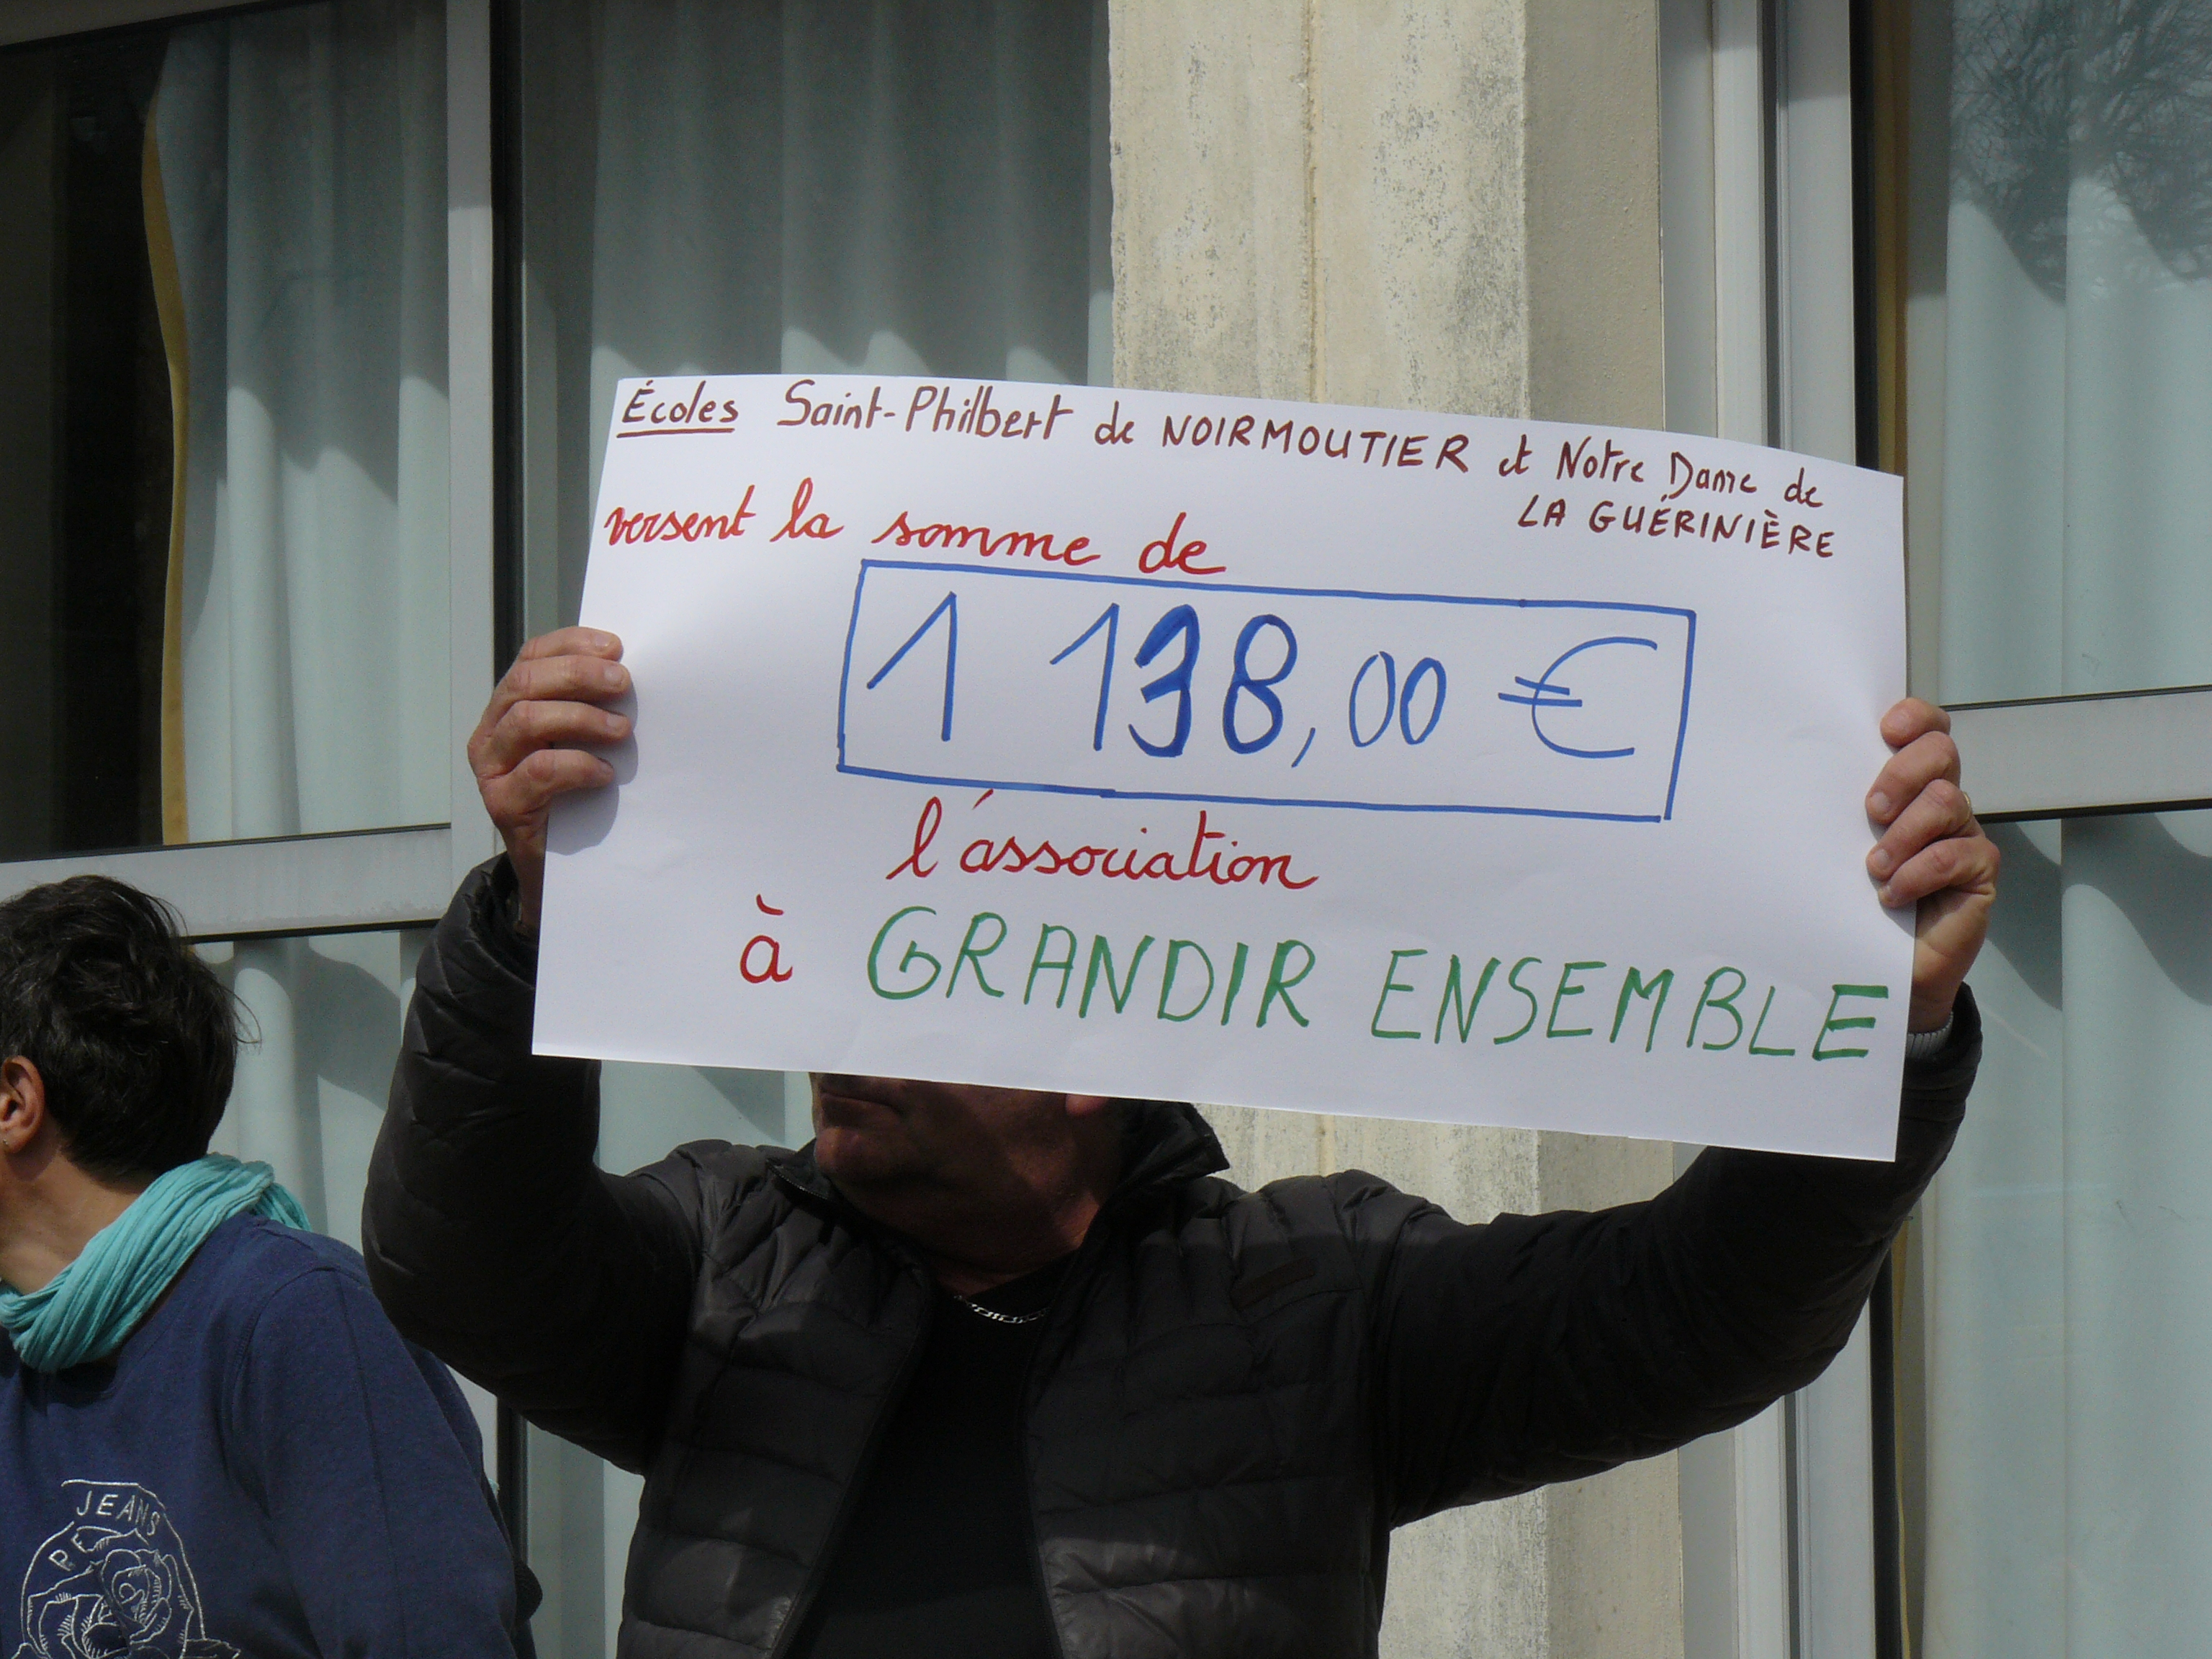 Écoles Saint-Philbert de NOIRMOUTIER et Notre Dame de
LA GUÉRINIÈRE
versent la somme de
1 138,00 €
l'association
à GRANDIR ENSEMBLE
JEANS